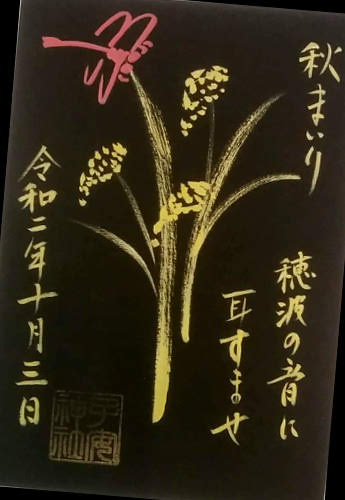 秋まいり
穂波の音に
耳すませ
令和二年十月三日
子安
神社